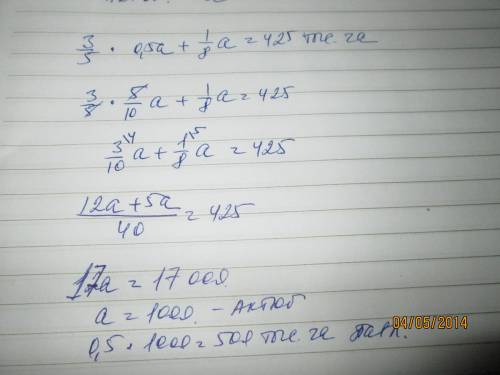 3/5 · 0,5a + 1/8 a = 425 тыс. га
3/5 · 5/10 a + 1/8 a = 425
3\4/10 a + 1\5/8 a = 425
12a + 5a / 40 = 425
17a = 17 000.
a = 1000. – Актюб
0,5 · 1000 = 500 тыс. га
04/05/2014